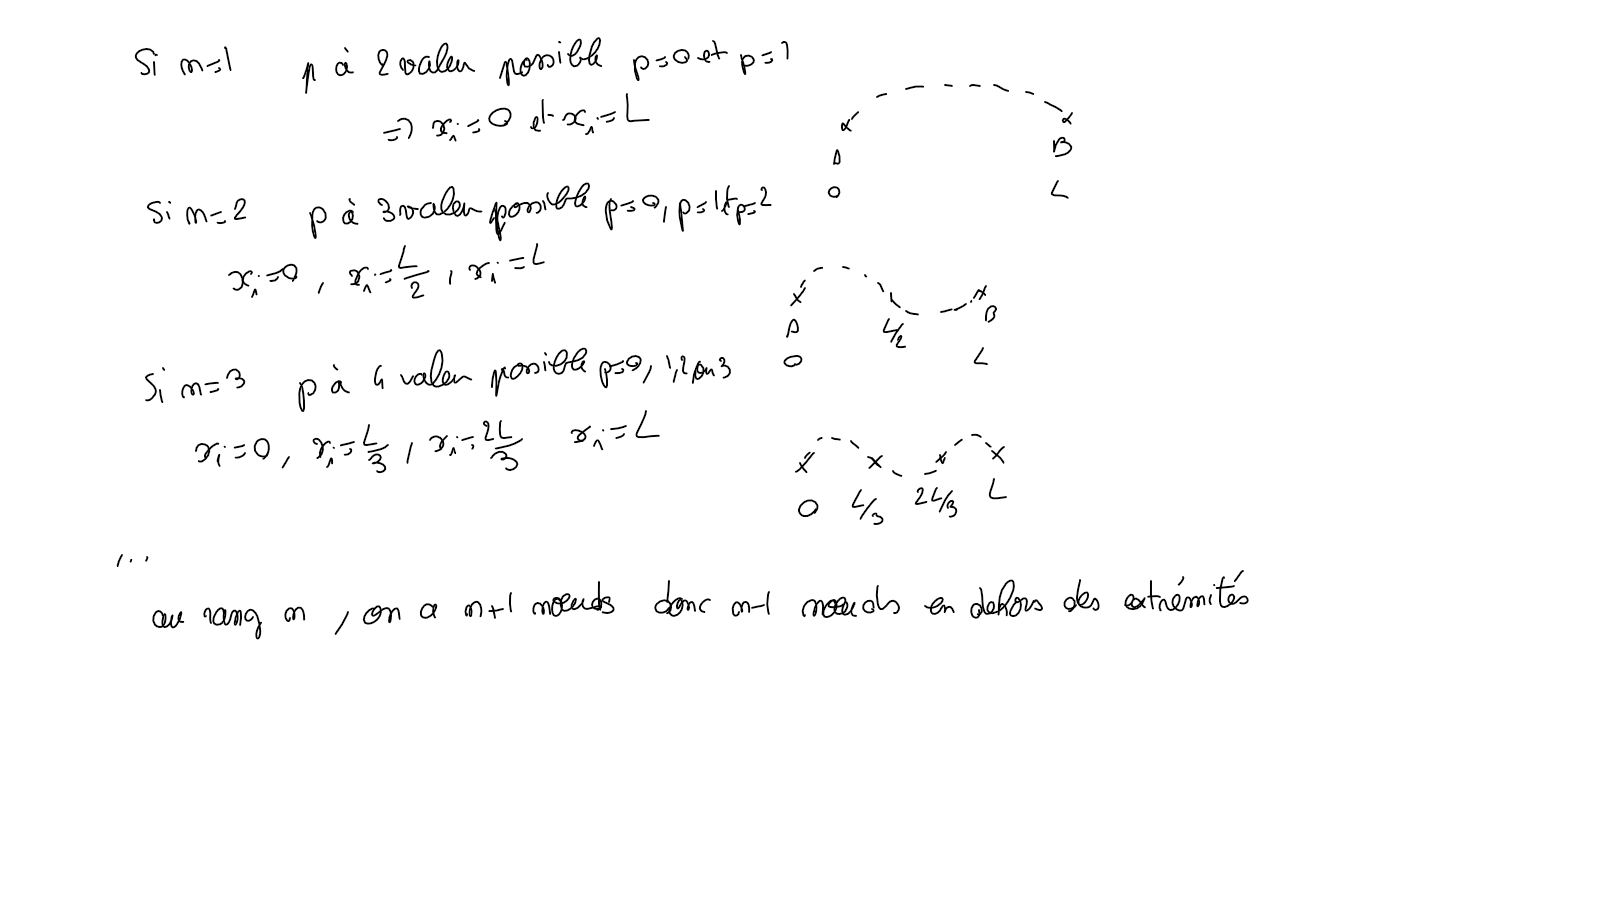 Si n=1 p à 2 valeu possible p=0 et p=1
=> xi=0 et xi=L
A B
O L
Si n=2 p à 3 valeu possible p=0, p=1 et p=2
xi=0, xi=L/2, xi=L
A L/2 B
O L
Si n=3 p à 4 valeu possible p=0, 1, 2 ou 3
xi=0, xi=L/3, xi=2L/3 xi=L
O L/3 2L/3 L
...
au rang n, on a n+1 noeuds donc n-1 noeuds en dehors des extrémités